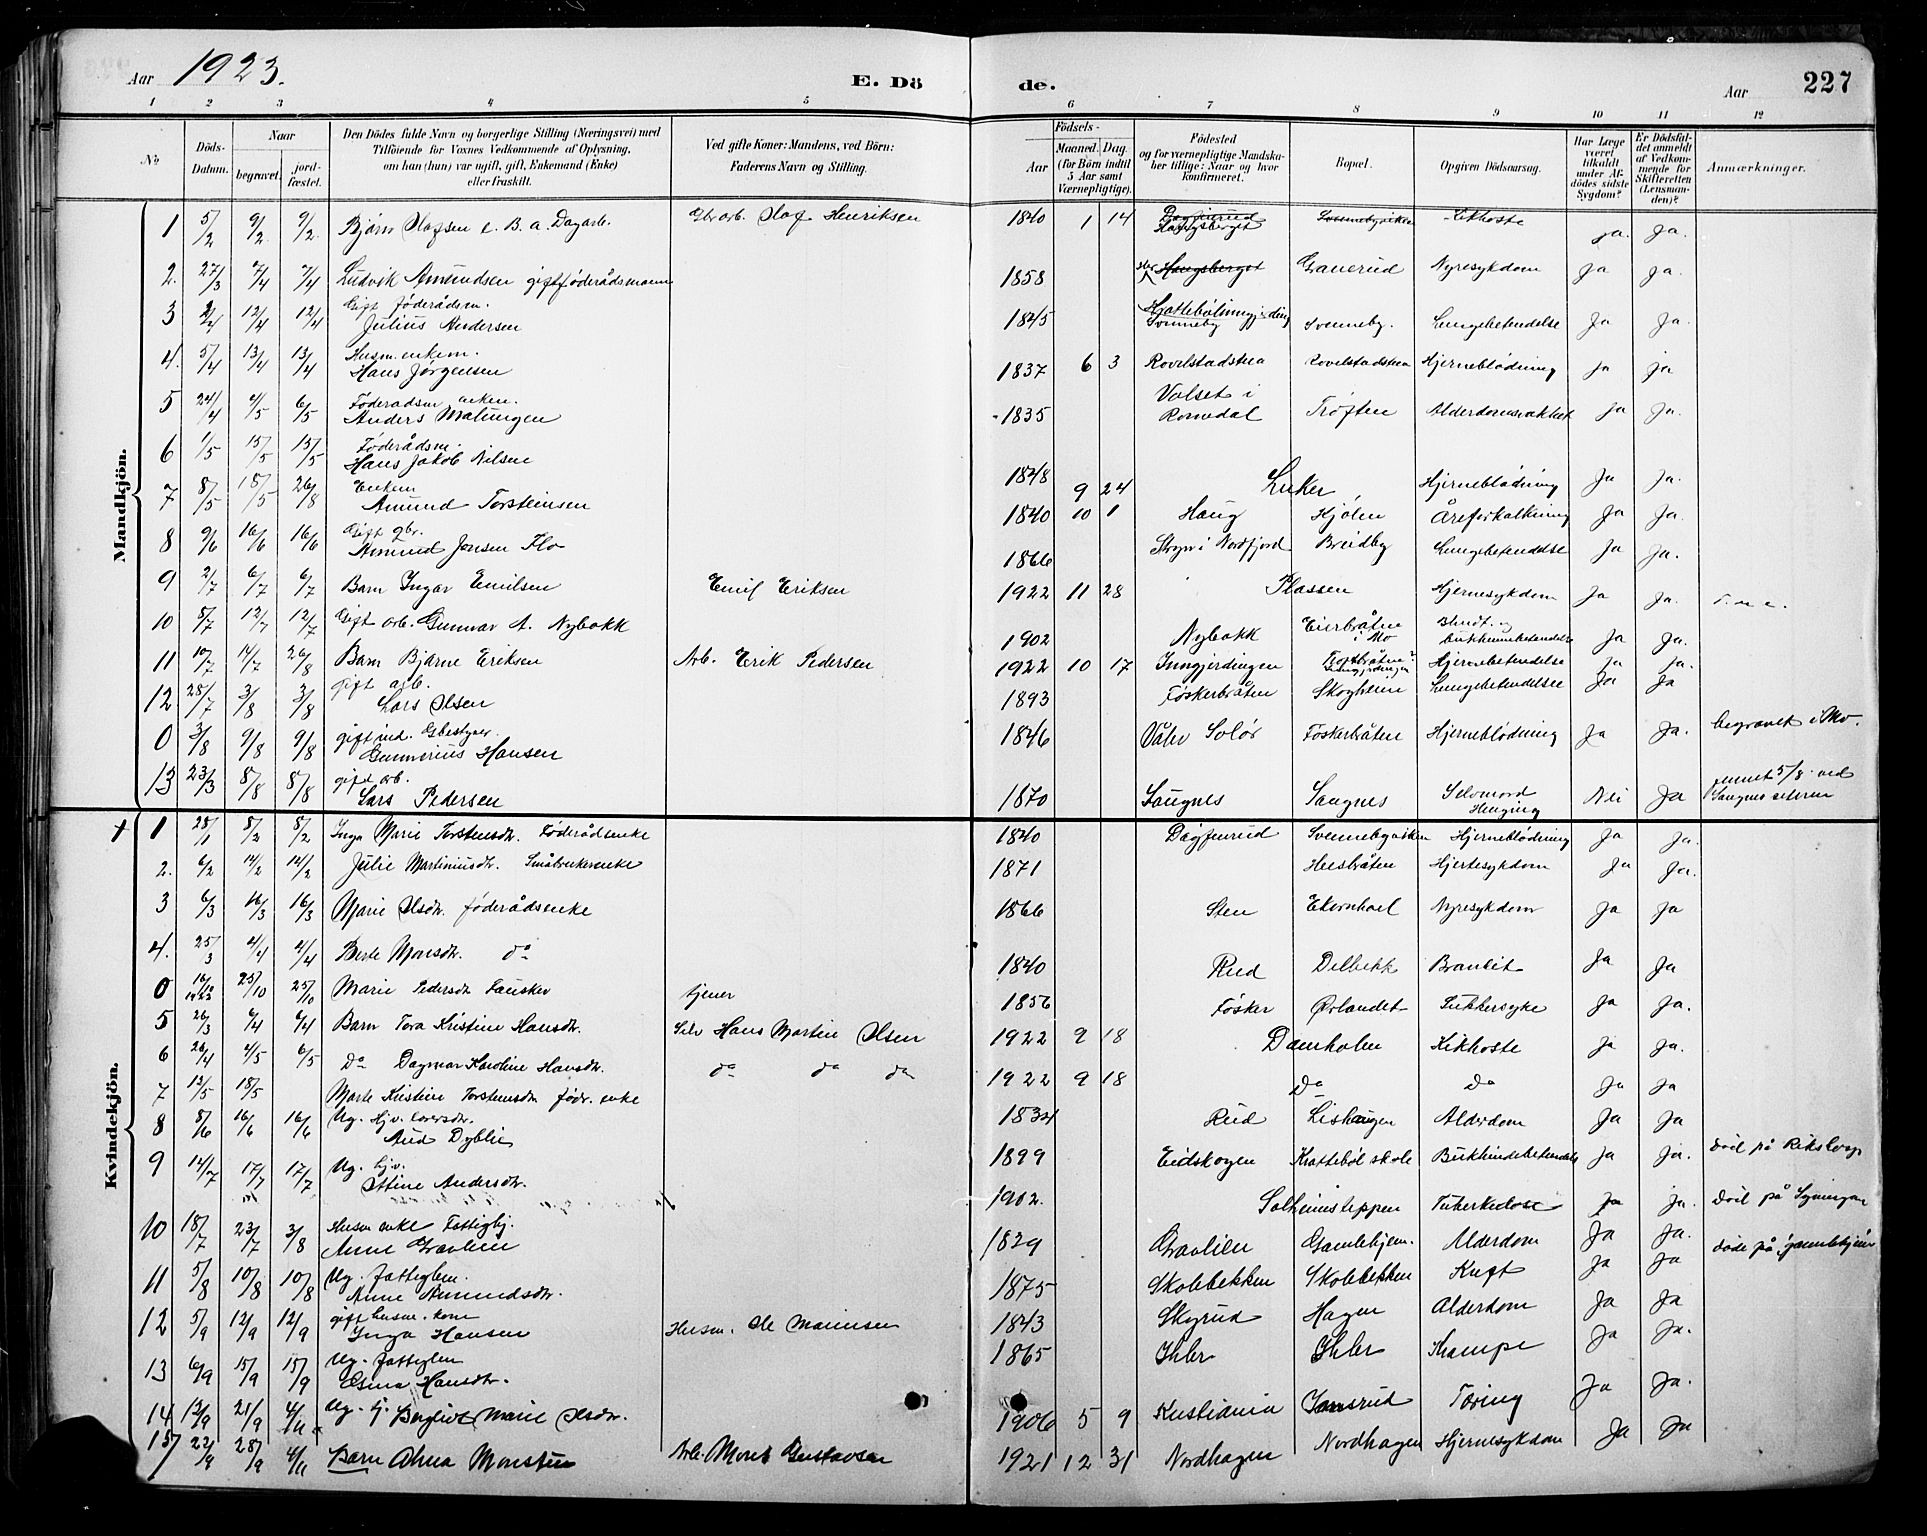 Aar 1923.
E. Dö
de.
Aar
227
1 2 3 4 5 6 7 8 9 10 11 12
No
Döds-Datum.
Naar
begravet.
jord-fæstet.
Den Dödes fulde Navn og borgerlige Stilling (Næringsvei) med
Tilföiende for Voxnes Vedkommende af Oplysning,
om han (hun) var ugift, gift, Enkemand (Enke)
eller fraskilt.
Ved gifte Koner: Mandens, ved Börn:
Faderens Navn og Stilling.
Födsels-
Aar
Maaned. Dag.
(for Börn indtil
5 Aar samt
Værnepligtige).
Födested
og for værnepligtige Mandska-
ber tillige: Naar og hvor
konfirmeret.
Bopæl.
Opgiven Dödsaarsag.
Har Læge
været
tilkaldt
under Af-
dödes sidste
Sygdom?
Er Dödsfal-
det anmeldt
af Vedkom-
mende for
Skifteretten
(Lensman-
den)?
Anmærkninger.
Mandkjön.
1 5/2 9/2 9/2 Bjørn Olafsen Olaf Henriksen 1840 1 14 Kikhoste ja. ja.
2. 27/3 7/4 7/4 Ludvik Amundsen gift föderådsmann 1858 Haugsberget Granerud Nyresykdom ja ja.
3 2/4 12/4 12/4 Gift föderådsm.
Julius Andersen 1845 Svenneby Svenneby. Lungebetendelse Ja ja.
4. 5/4 13/4 13/4 Husm. enkem.
Hans Jørgensen 1837 6 3 Rovelstadstua Rovelstadstua Hjerneblödning ja ja
5 24/4 6/5 Föderadsm enkem.
Anders Malungen 1835 Valset i
Romedal Trøften ja ja.
6 1/5 15/5 15/5 Föderådsm.
Hans Jakob Nilsen 1848 9 24 Luker Hjerneblödning Ja ja.
7 8/5 15/5 26/8 Enkem
Amund Torsteinsen 1840 10 1 Haug Kjölen Åreforkalkning Ja Ja.
8 9/6 16/6 16/6 Gift gbr.
Amund Jonsen Flo 1866 Stryn i Nordfjord Breidby Lungebetendelse Ja ja.
9 2/7 6/7 6/7 Barn Ingar Emilsen Emil Eriksen 1922 11 28 Plassen Hjernesykdom Ja ja.
10 8/7 12/7 12/7 Gift arb. Gunnar A. Nybakk 1902 Nybakk Eierbråten
i Mo Blindt. og
bukhinnebetendelse Ja ja.
11 10/7 14/7 26/8 Barn Bjarne Eriksen Arb. Erik Pedersen 1922 10 17 Inngjerdingen Hjernebetendelse Ja ja.
12 28/7 3/8 3/8 gift arb.
Lars Olsen 1893 Føskerbråten Skogheim Lungebetendelse Ja Ja
0 3/8 9/8 9/8 gift ind. Gbestyrer.
Gunnerius Hansen 1846 Våler Solör Føskerbråten Hjerneblödning Ja Ja. begravet i Mo.
13 23/3 8/8 8/8 gift arb.
Lars Pedersen 1870 Saugnes Saugnes Selvmord
Henging Nei Ja funnet 5/8 ved
Saugnes seteren
Kvindekjön.
+ 1 28/1 8/2 8/2 Inga Marie Torstensdtr. Föderådsenke 1840 Dagfinrud Svennebyviken Hjerneblödning Ja Ja.
2. 6/2 14/2 14/2 Julie Martiniusdtr. Småbrukerenke 1871 Husbråten Hjertesykdom Ja Ja.
3 6/3 16/3 16/3 Marie Olsdtr. föderådsenke 1866 Sten Ekornhoel Nyresykdom Ja Ja
4. 25/3 4/4 4/4 Berte Monsdtr. do 1840 Rud Delbekk Ja Ja
0 16/10 1922 25/10 25/10 Marie Pedersdtr Fausker tjener 1856 Føsker Ørlandet Sukkersyke Ja Ja.
5 26/3 6/4 6/4 Barn Tora Kristine Hansdtr. Selv Hans Martin Olsen 1922 9 18 Damholen Kikhoste ja ja.
6 26/4 4/5 6/5 Do Dagmar Karoline Hansdtr. do do do 1922 9 18 Do Do Ja Ja
7 12/5 18/5 Marte Kristine Torstensdtr födr. enke 1834 Rud Lishaugen Alderdom Ja Ja
8 8/6 16/6 16/6 Ug. Hjv.
Aud Dyblie 1899 Eidskogen Krattebøl skole Bukhindebetendelse Ja ja. Död på Rikshosp
9 12/7 17/7 17/7 Ug. hjv.
Ottine Andersdtr. 1902. Solheimsteppen Tuberkulose Ja ja. Död på
10 18/7 23/7 3/8 Husm enke Fattiglj.
Anne Gravlien 1829 Gravlien Gamlehjem. Alderdom Ja Ja. döde på gamlehjem
11 5/8 10/8 10/8 Ug. fattiglem.
Anne Amundsdtr. 1875 Skolebekken Skolebekken Kreft Ja Ja
12 5/9 12/9 12/9 gift husm. kone
Inga Hansen Husm. Ole Marinsen 1843 Skyrud Hagen Alderdom Ja Ja
13 6/9 15/9 15/9 Ug. fattiglem
Hansdtr. 1865 Ihler Ihler Krampe Ja Ja.
14 13/9 21/9 4/11 Ug. tj. Bergliot Marie Olsdtr. 1906 5 9 Kristiania Jansrud Tæring Ja Ja.
15 22/9 28/9 4/11 Barn Alma Monsten Arb. Mons Gustavsen 1921 12 31 Nordhagen Nordhagen Hjernesykdom Ja Ja